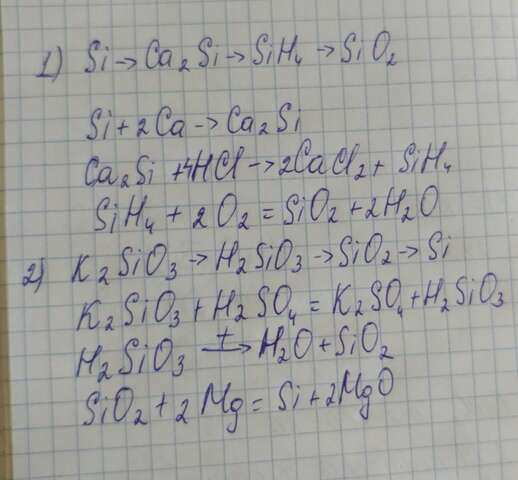 1) Si → Ca₂Si → SiH₄ → SiO₂
Si + 2Ca → Ca₂Si
Ca₂Si + 4HCl → 2CaCl₂ + SiH₄
SiH₄ + 2O₂ = SiO₂ + 2H₂O
2) K₂SiO₃ → H₂SiO₃ → SiO₂ → Si
K₂SiO₃ + H₂SO₄ = K₂SO₄ + H₂SiO₃
H₂SiO₃ —t→ H₂O + SiO₂
SiO₂ + 2Mg = Si + 2MgO